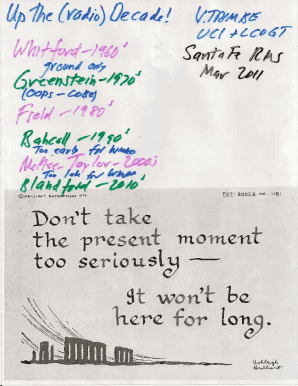 Up The (radio) Decade!
V. TRIMBLE
UCI + LCOGT
Santa Fe RMS
Mar 2011
Whitford - 1960's
ground only
Greenstein - 1970's
(OOPS - COBE)
Field - 1980's
Bahcall - 1990's
Too early for WMAP
McKee-Taylor - 2000's
Too late for WMAP
Blandford - 2010's
© BRILLIANT ENTERPRISES
POT-SHOTS NO.
Don't take
the present moment
too seriously —
It won't be
here for long.
Ashleigh
Brilliant